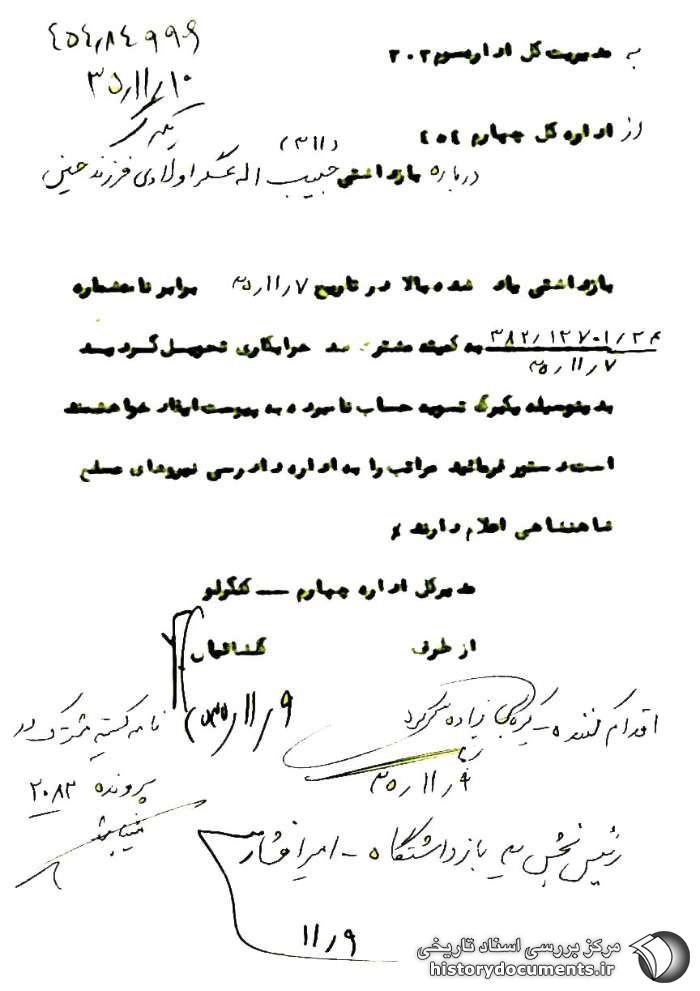 ۴۵۴/۸۴۹۹۶
۳۵/۱۱/۱۰
به مدیریت کل اداره سوم ۳۰۲
از اداره کل چهارم ۴۵۴
(۳۱۱)
درباره بازداشتی حبیب اله عسگر اولادی فرزند حسین
بازداشتی یاد شده بالا در تاریخ ۳۵/۱۱/۷ برابر نامه شماره
۳۸۲/۱۲۷۰۱/۲۴
۳۵/۱۱/۷
به کمیته مشترک ضد خرابکاری تحویل گردید
بدینوسیله یکبرگ تسویه حساب نامبرده به پیوست ایفاد خواهشمند
است دستور فرمائید مراتب را به اداره دادرسی نیروهای مسلح
شاهنشاهی اعلام دارند
مدیرکل اداره چهارم — کنگرلو
از طرف
(۳۵/۱۱/۹
اقدام کننده -
۳۵/۱۱/۹
نامه کمیته مشترک در
پرونده ۲۰۸۳
رئیس بخش یه بازداشتگاه - امیر افشار
۱۱/۹
مرکز بررسی اسناد تاریخی
historydocuments.ir